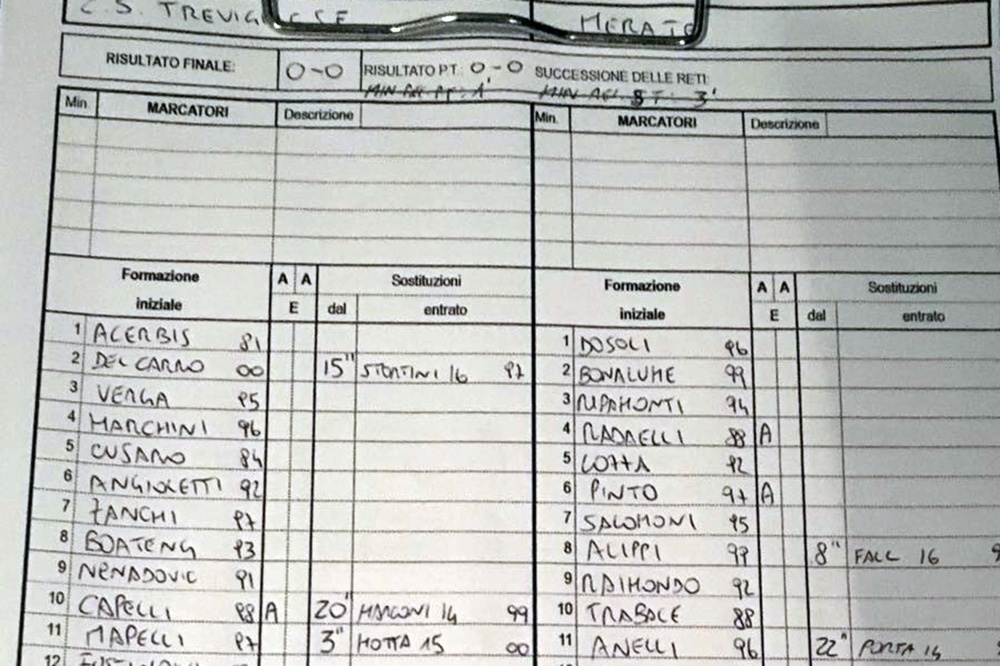 C.S. TREVIG CSE MERATE
RISULTATO FINALE: 0-0 RISULTATO P.T. 0-0 SUCCESSIONE DELLE RETI:
MIN REC. PT: 1' MIN REC. ST: 3'
Min. MARCATORI Descrizione Min. MARCATORI Descrizione
Formazione iniziale A A E Sostituzioni dal entrato Formazione iniziale A A E Sostituzioni dal entrato
1 ACERBIS 81 1 DOSOLI 96
2 DEL CARRO 00 15" STORTINI 16 97 2 BONALUME 99
3 VERGA 95 3 RIPAMONTI 94
4 MARCHINI 96 4 RADAELLI 88 A
5 CUSARO 84 5 LOTTA 92
6 ANGIOLETTI 92 6 PINTO 97 A
7 ZANCHI 97 7 SALOMONI 95
8 BOATENG 93 8 ALIPPI 99 8" FALL 16 9
9 NENADOVIC 91 9 RAIMONDO 92
10 CAPELLI 88 A 20" MARCONI 14 99 10 TRABACE 88
11 MAPELLI 97 3" MOTTA 15 00 11 ANELLI 96 22" PORTA 14
12